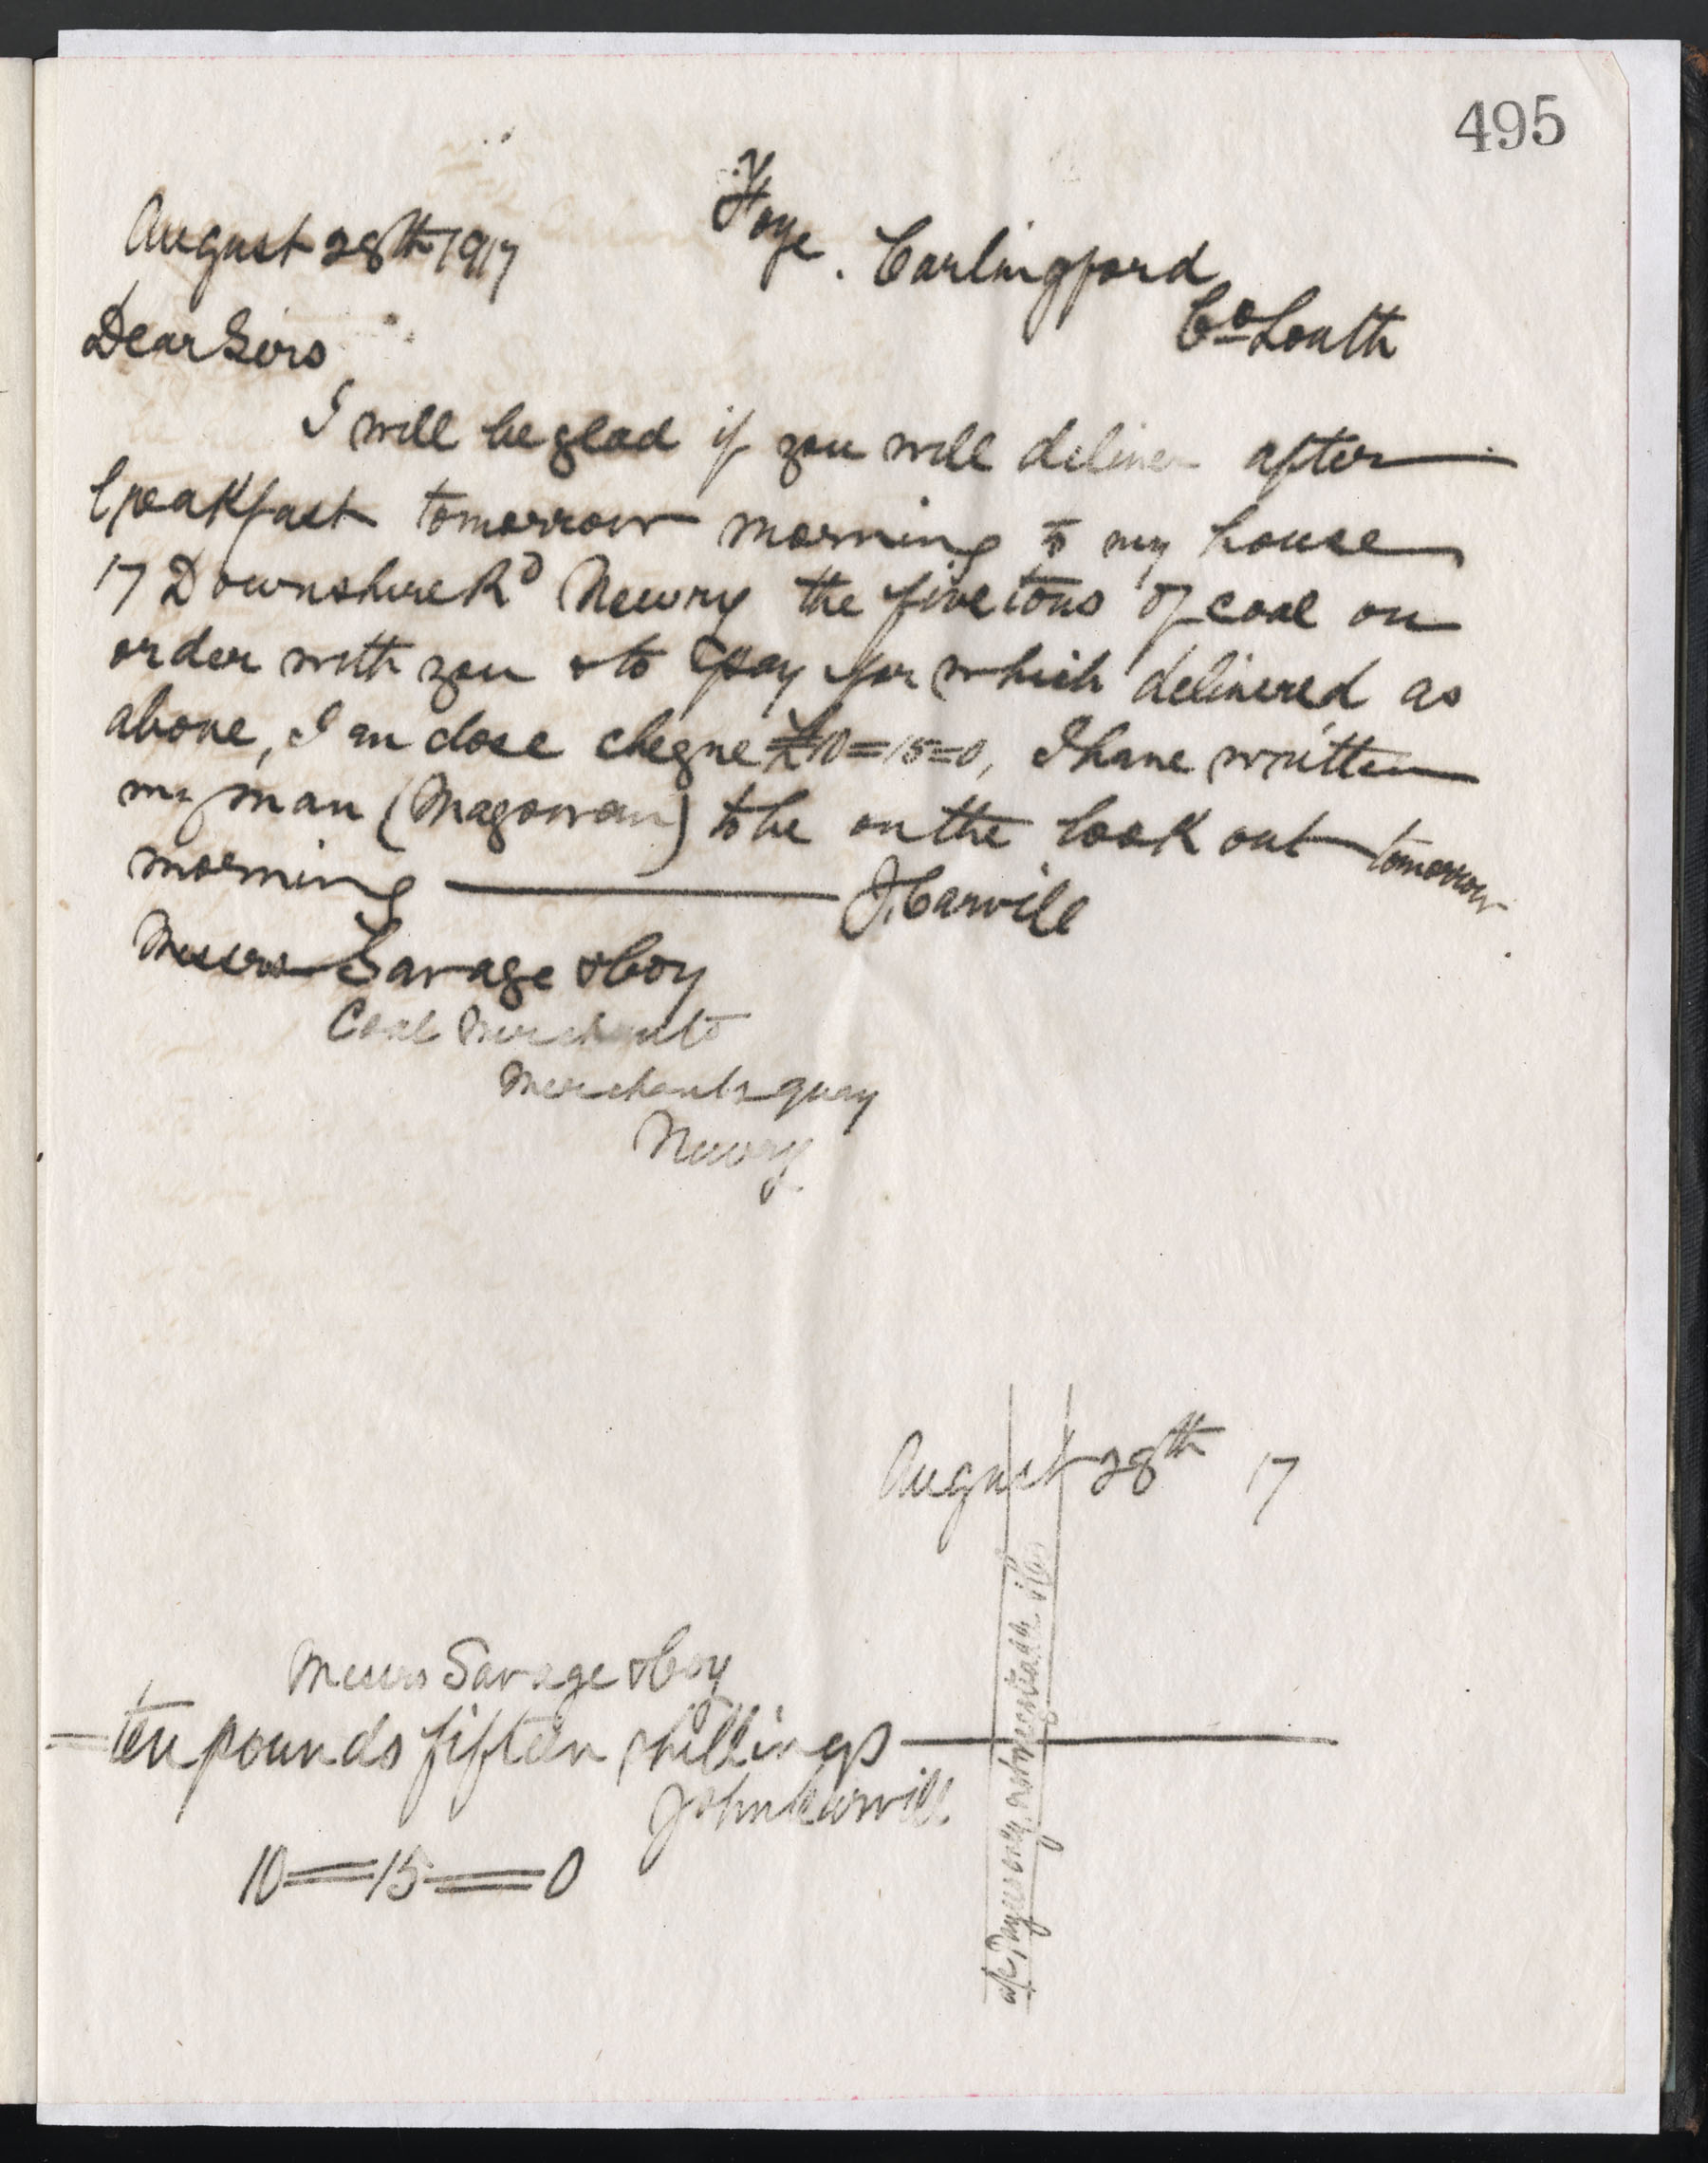 495
August 28th 1917
Foye. Carlingford
Co Louth
Dear Sirs
I will be glad if you will deliver after
breakfast tomorrow morning to my house
17 Downshire Rd Newry the five tons of coal on
order with you & to pay for which delivered as
above, I enclose cheque £10=15=0, I have written
my man (Magowan) to be on the look out tomorrow
morning J. Carvill
Messrs Savage & Coy
Coal Merchants
Merchants quay
Newry
August 28th 17
Messrs Savage & Coy
ten pounds fifteen shillings
John Carvill
10=15=0
a/c Payees only not negotiable & Co